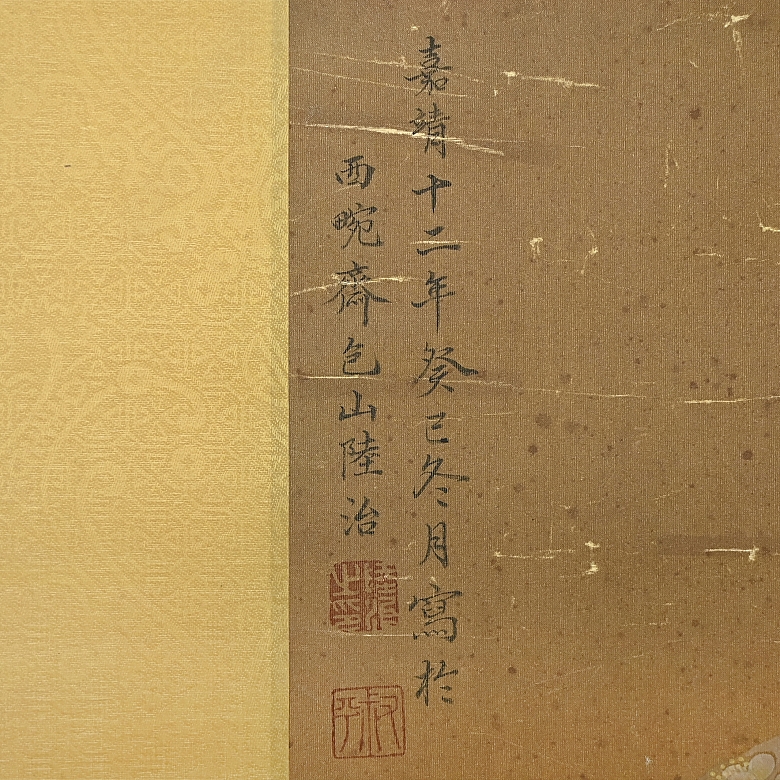 嘉靖十二年癸巳冬月寫於
西畹齋包山陸治
叔平